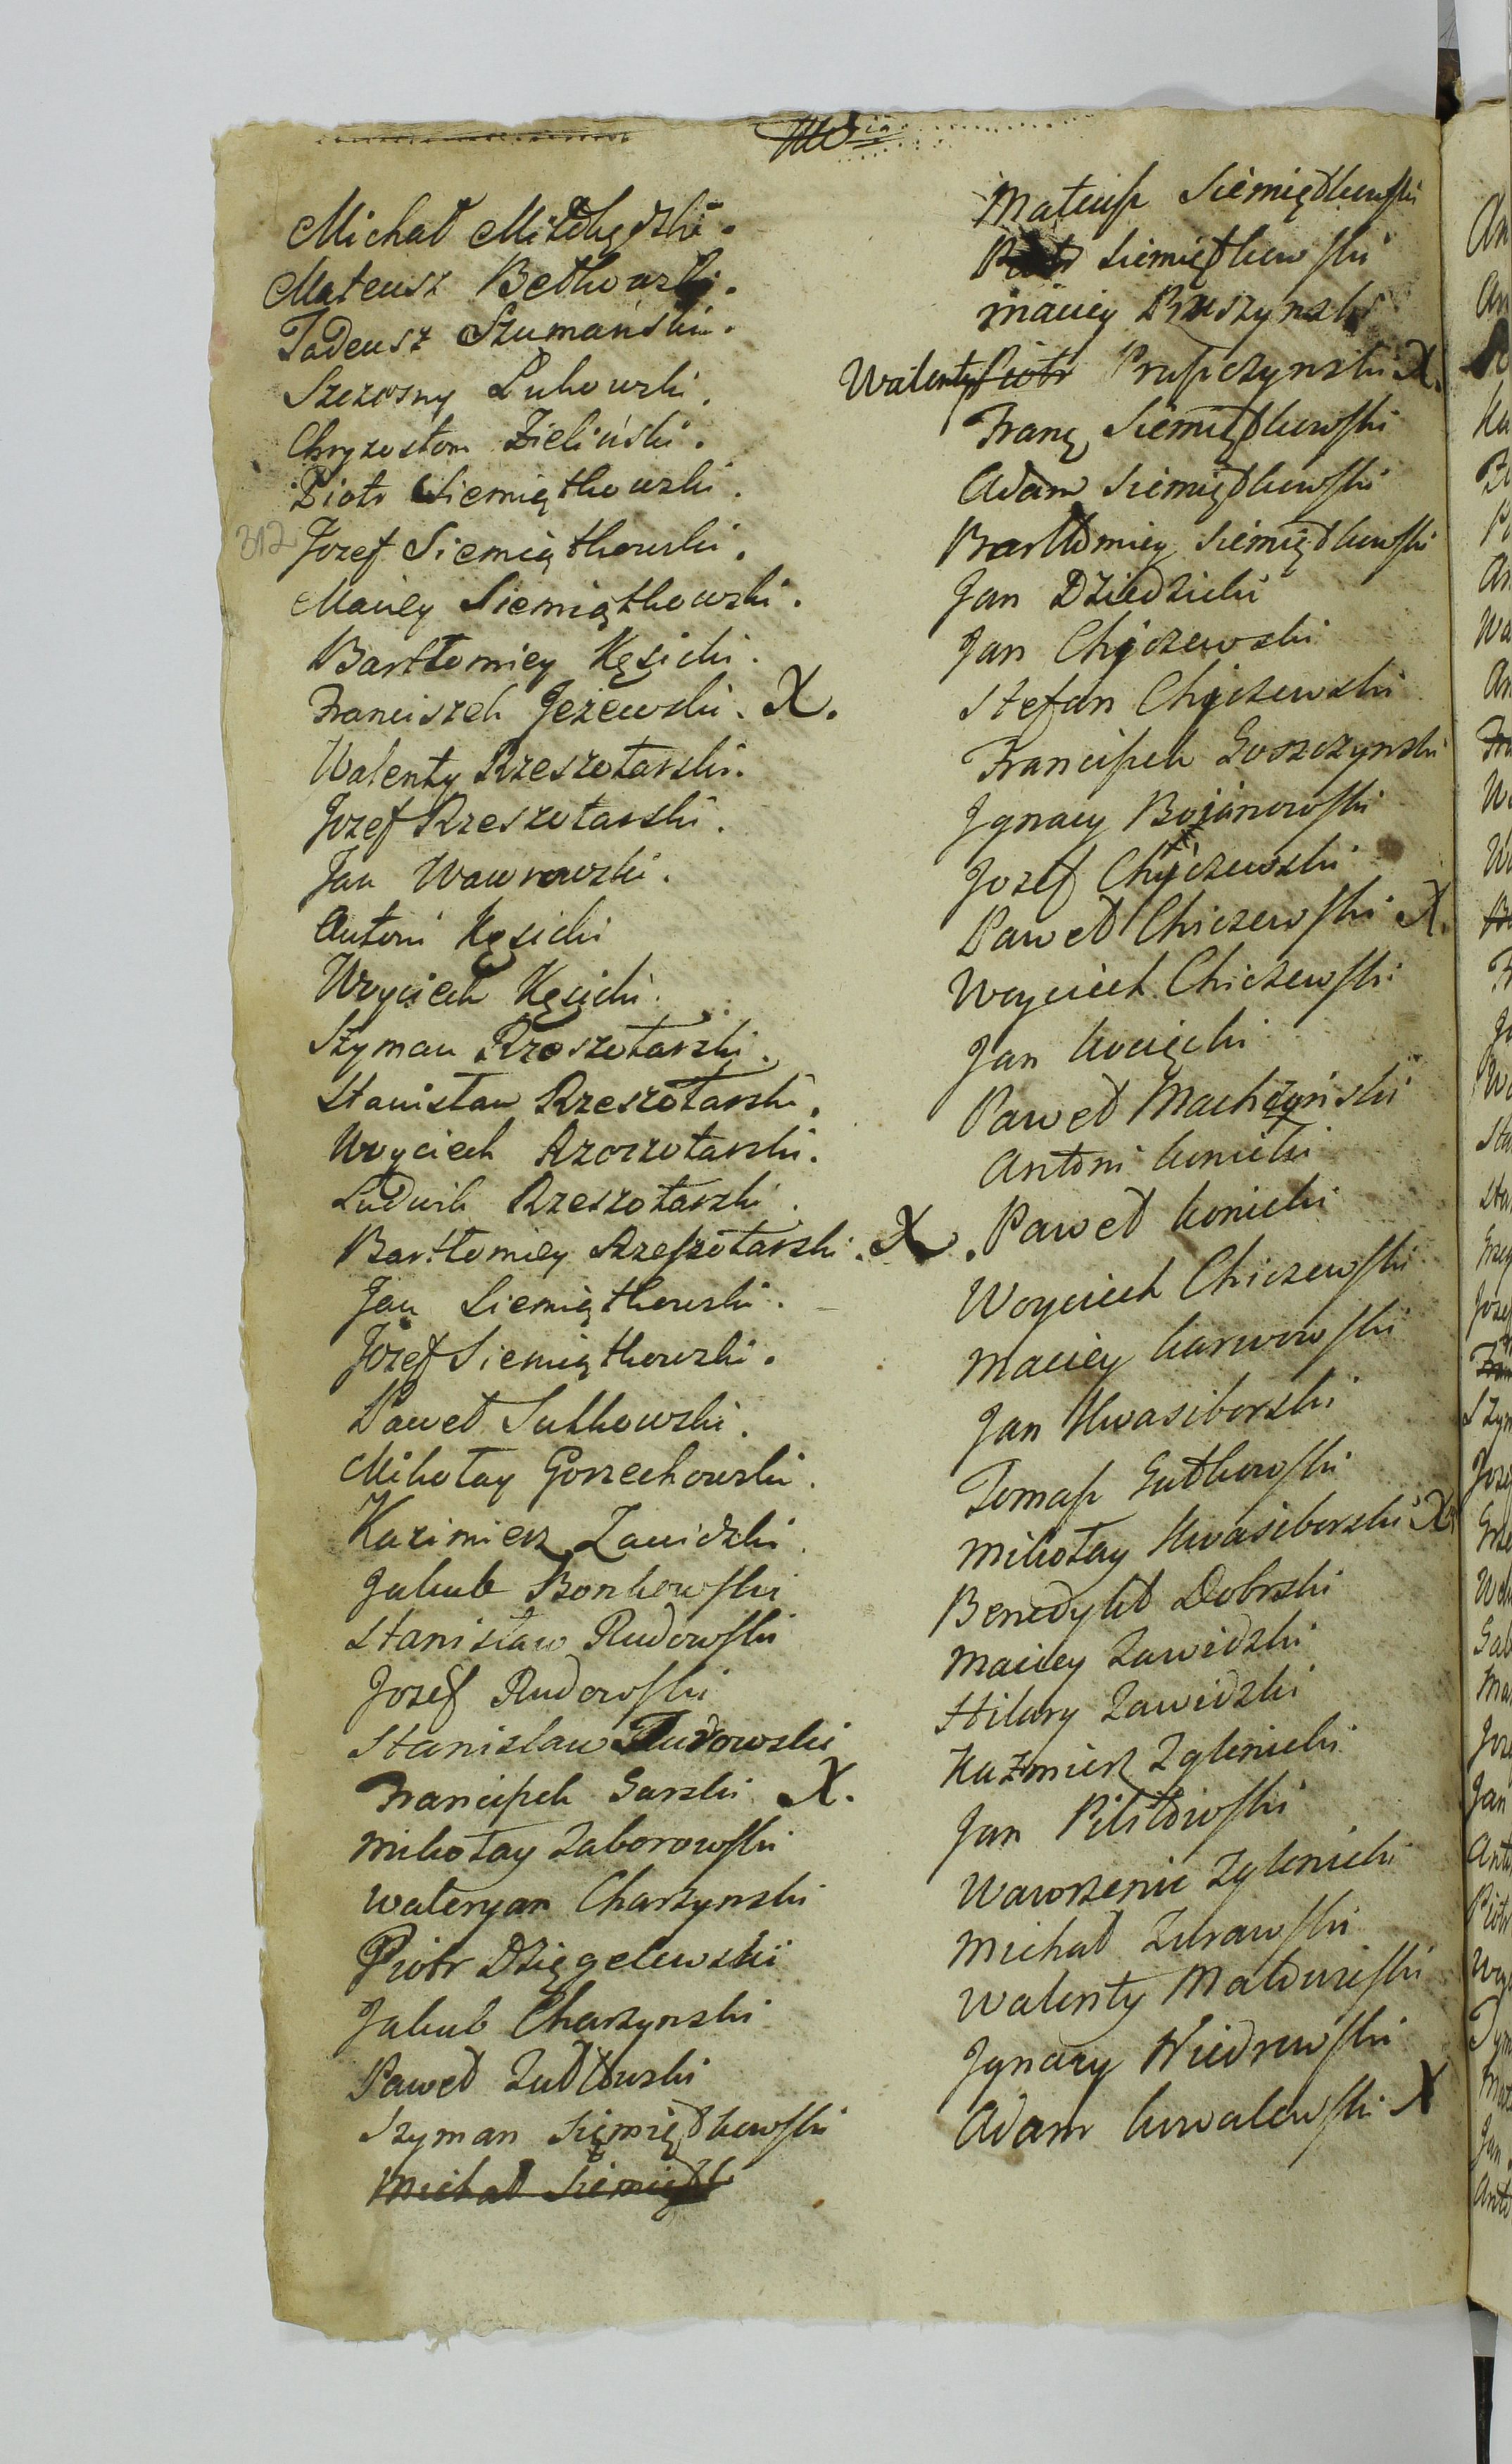 Michał Miłobędzki.
Mateusz Bętkowski.
Tadeusz Szumański.
Szczęsny Łukowski.
Chryzostom Zieliński.
Piotr Siemiątkowski.
312
Jozef Siemiątkowski.
Maciey Siemiątkowski.
Bartłomiey Kęsicki.
Franciszek Jeżewski. X.
Walenty Rzeszotarski.
Jozef Rzeszotarski.
Jan Wawrowski.
Antoni Kęsicki
Woyciech Kęsicki.
Szyman Rzeszotarski.
Stanisław Rzeszotarski.
Woyciech Rzeszotarski.
Ludwik Rzeszotarski.
Bartłomiey Rzeszotarski. X.
Jan Siemiątkowski.
Józef Siemiątkowski.
Paweł Sutkowski.
Mikołay Gorzechowski.
Kazimierz Zawidzki.
Jakub Bonkowski
Stanisław Rudowski
Josef Rudowski
Stanisław Rudowski
Franciszek Garski X.
Mikołay Zaborowski
Waleryan Charzynski
Piotr Dzięgelewski
Jakub Charzynski
Paweł Zudłowski
Szyman Siemiędkowski
Michał Siemiędk
Mateusz Siemiędkowski
Piotr Siemiędkowski
Maciey Bruszynski
Walenty Piotr Prusczynski X.
Franç Siemiędkowski
Adam Siemiędkowski
Bartłomiey Siemiędkowski
Jan Dziedzicki
Jan Chyczewski
Stefan Chyczewski
Franciszek Gosczynski
Jgnacy Bojanowski
Jozef Chyczewski
Paweł Chiczewski X.
Woyciech Chiczewski
Jan kocięcki
Paweł Machczyński
Antoni konicki
Paweł konicki
Woyciech Chiczewski
Maciey karwowski
Jan Kwasiborski
Tomasz Gutkowski
Mikołay Kwasiborski X.
Benedykt Dobrski
Maciey Zawidzki
Hilary Zawidzki
Kazmierz Zglenicki
Jan Pilitowski
Wawrzenic Zglenicki
Michał Zurawski
Walenty Małuzeski
Jgnacy Niedrowski
Adam kowalewski X